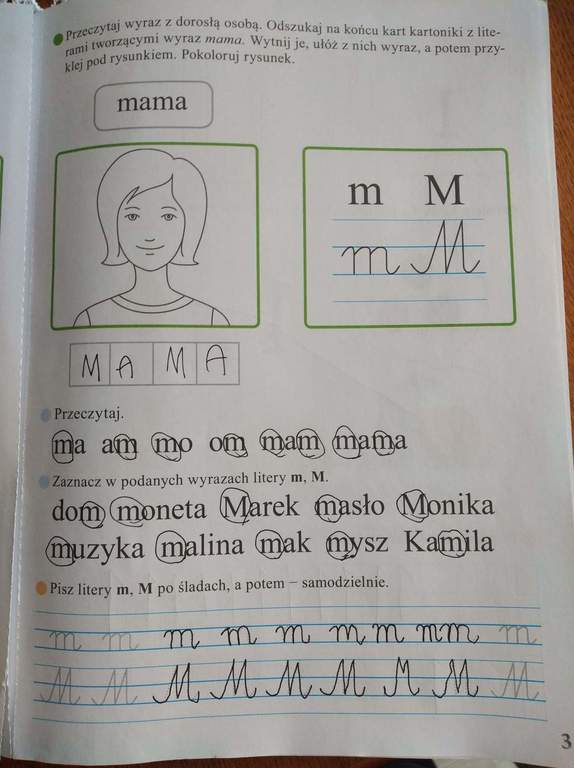 Przeczytaj wyraz z dorosłą osobą. Odszukaj na końcu kart kartoniki z lite-
rami tworzącymi wyraz mama. Wytnij je, ułóż z nich wyraz, a potem przy-
klej pod rysunkiem. Pokoloruj rysunek.
mama
m M
m M
M A M A
Przeczytaj.
ma am mo om mam mama
Zaznacz w podanych wyrazach litery m, M.
dom moneta Marek masło Monika
muzyka malina mak mysz Kamila
Pisz litery m, M po śladach, a potem – samodzielnie.
m m m m m m m m m m
M M M M M M M M M
3